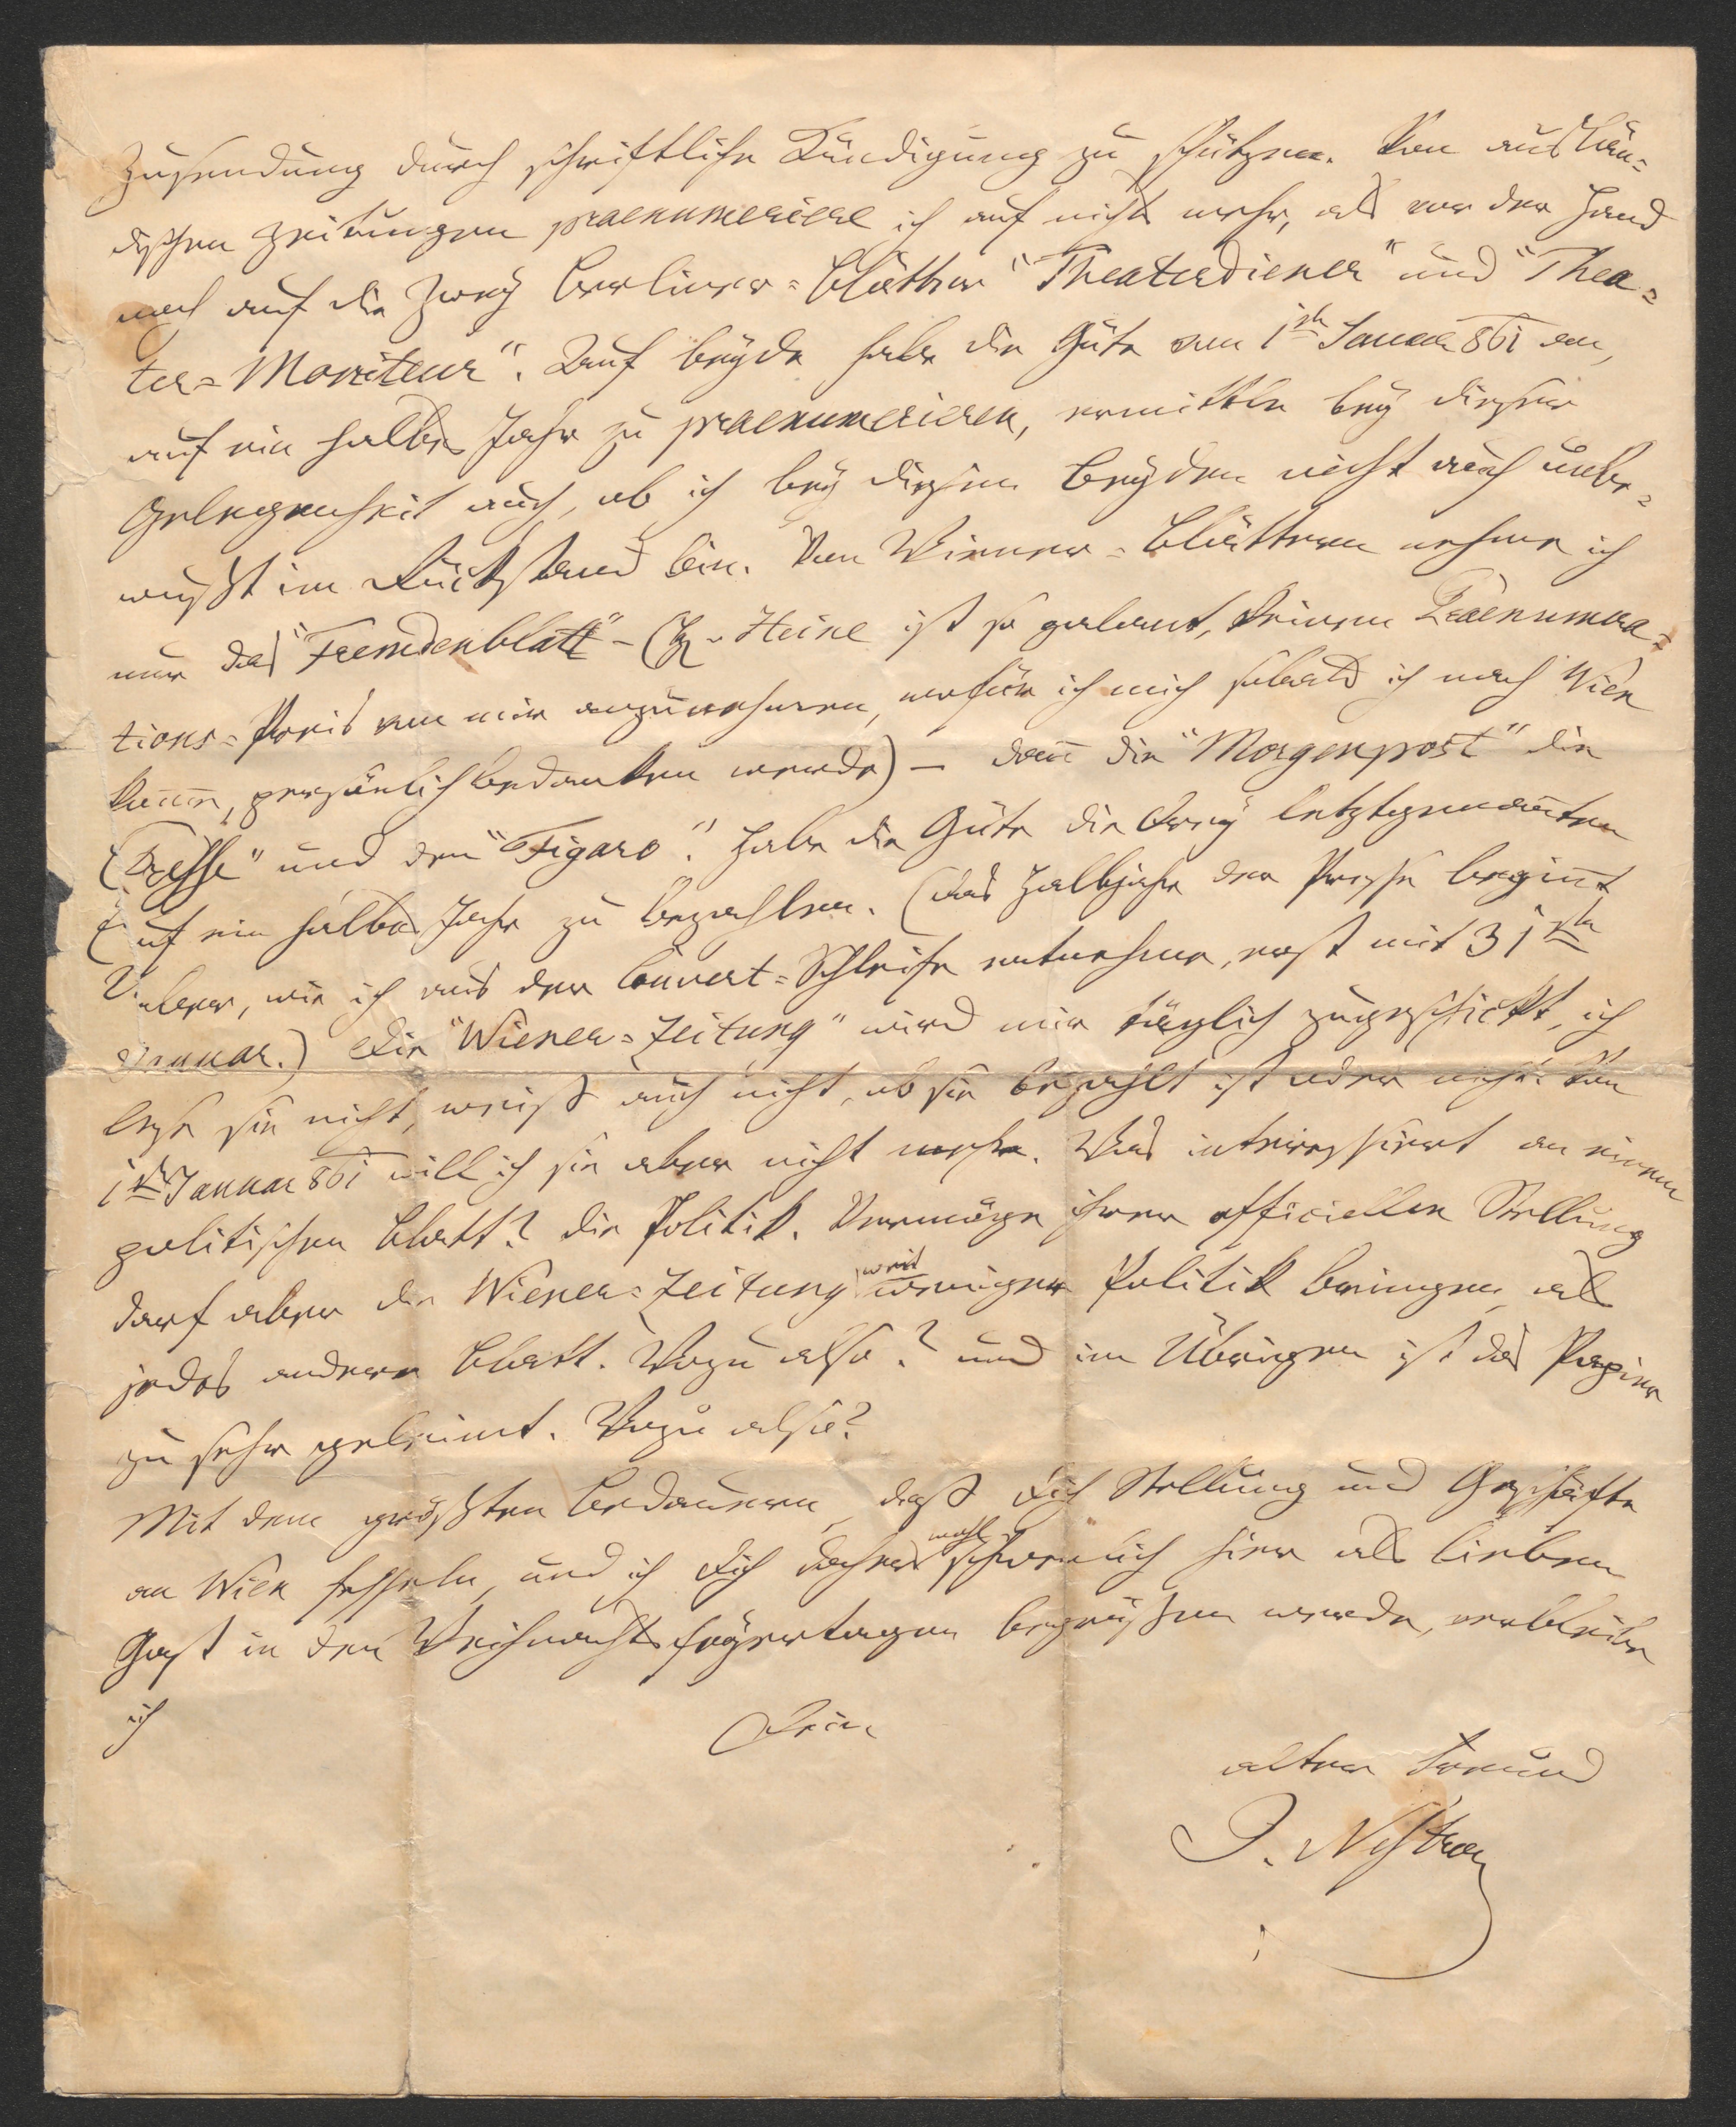 Zusendung durch schriftliche Kündigung zu schützen. Von auslän=
dischen Zeitungen praenumeriere ich auf nichts mehr, als vor der Hand
noch auf die zwey Berliner=Blätter "Theaterdiener" und "Thea=
ter=Moniteur". Auf beyde habe die Güte vom 1ten Januar 861 an,
auf ein halbes Jahr zu praenumerieren, ermittle bey dieser
Gelegenheit auch, ob ich bey diesen Beyden nicht auch unbe=
wußt im Rückstand bin. Von Wiener=Blättern nehme ich
nur das "Fremdenblatt" – (H. v Heine ist so galant, keinen Praenumera=
tions=Preis von mir anzunehmen, wofür ich mich sobald ich nach Wien
komme, persönlich bedanken werde) – dann die "Morgenpost" die
"Presse" und den "Figaro". Habe die Güte die drey letztgenannten
auf ein halbes Jahr zu bezahlen. (Das Halbjahr der Presse beginnt
aber, wie ich aus der Couvert=Schleife entnehme, erst mit 31ten
Januar.) Die "Wiener=Zeitung" wird mir täglich zugeschickt, ich
lese sie nicht, weiß auch nicht, ob sie bezahlt ist oder nicht. Vom
1ten Januar 861 will ich sie aber nicht mehr. Was interessiert an einem
politischen Blatt? die Politik. Vermöge ihrer officiellen Stellung
darf aber die Wiener=Zeitung weit weniger Politik bringen, als
jedes andere Blatt. Wozu also? und im Übrigen ist das Papier
zu sehr geleimt. Wozu also?
Mit dem größten Bedauern, daß Dich Stellung und Geschäfte
an Wien fesseln, und ich Dich daher wohl schwerlich hier als lieben
Gast in den Weihnachtsfeyertagen begrüßen werde, verbleibe
ich
Dein
alter Freund
J. Nestroy